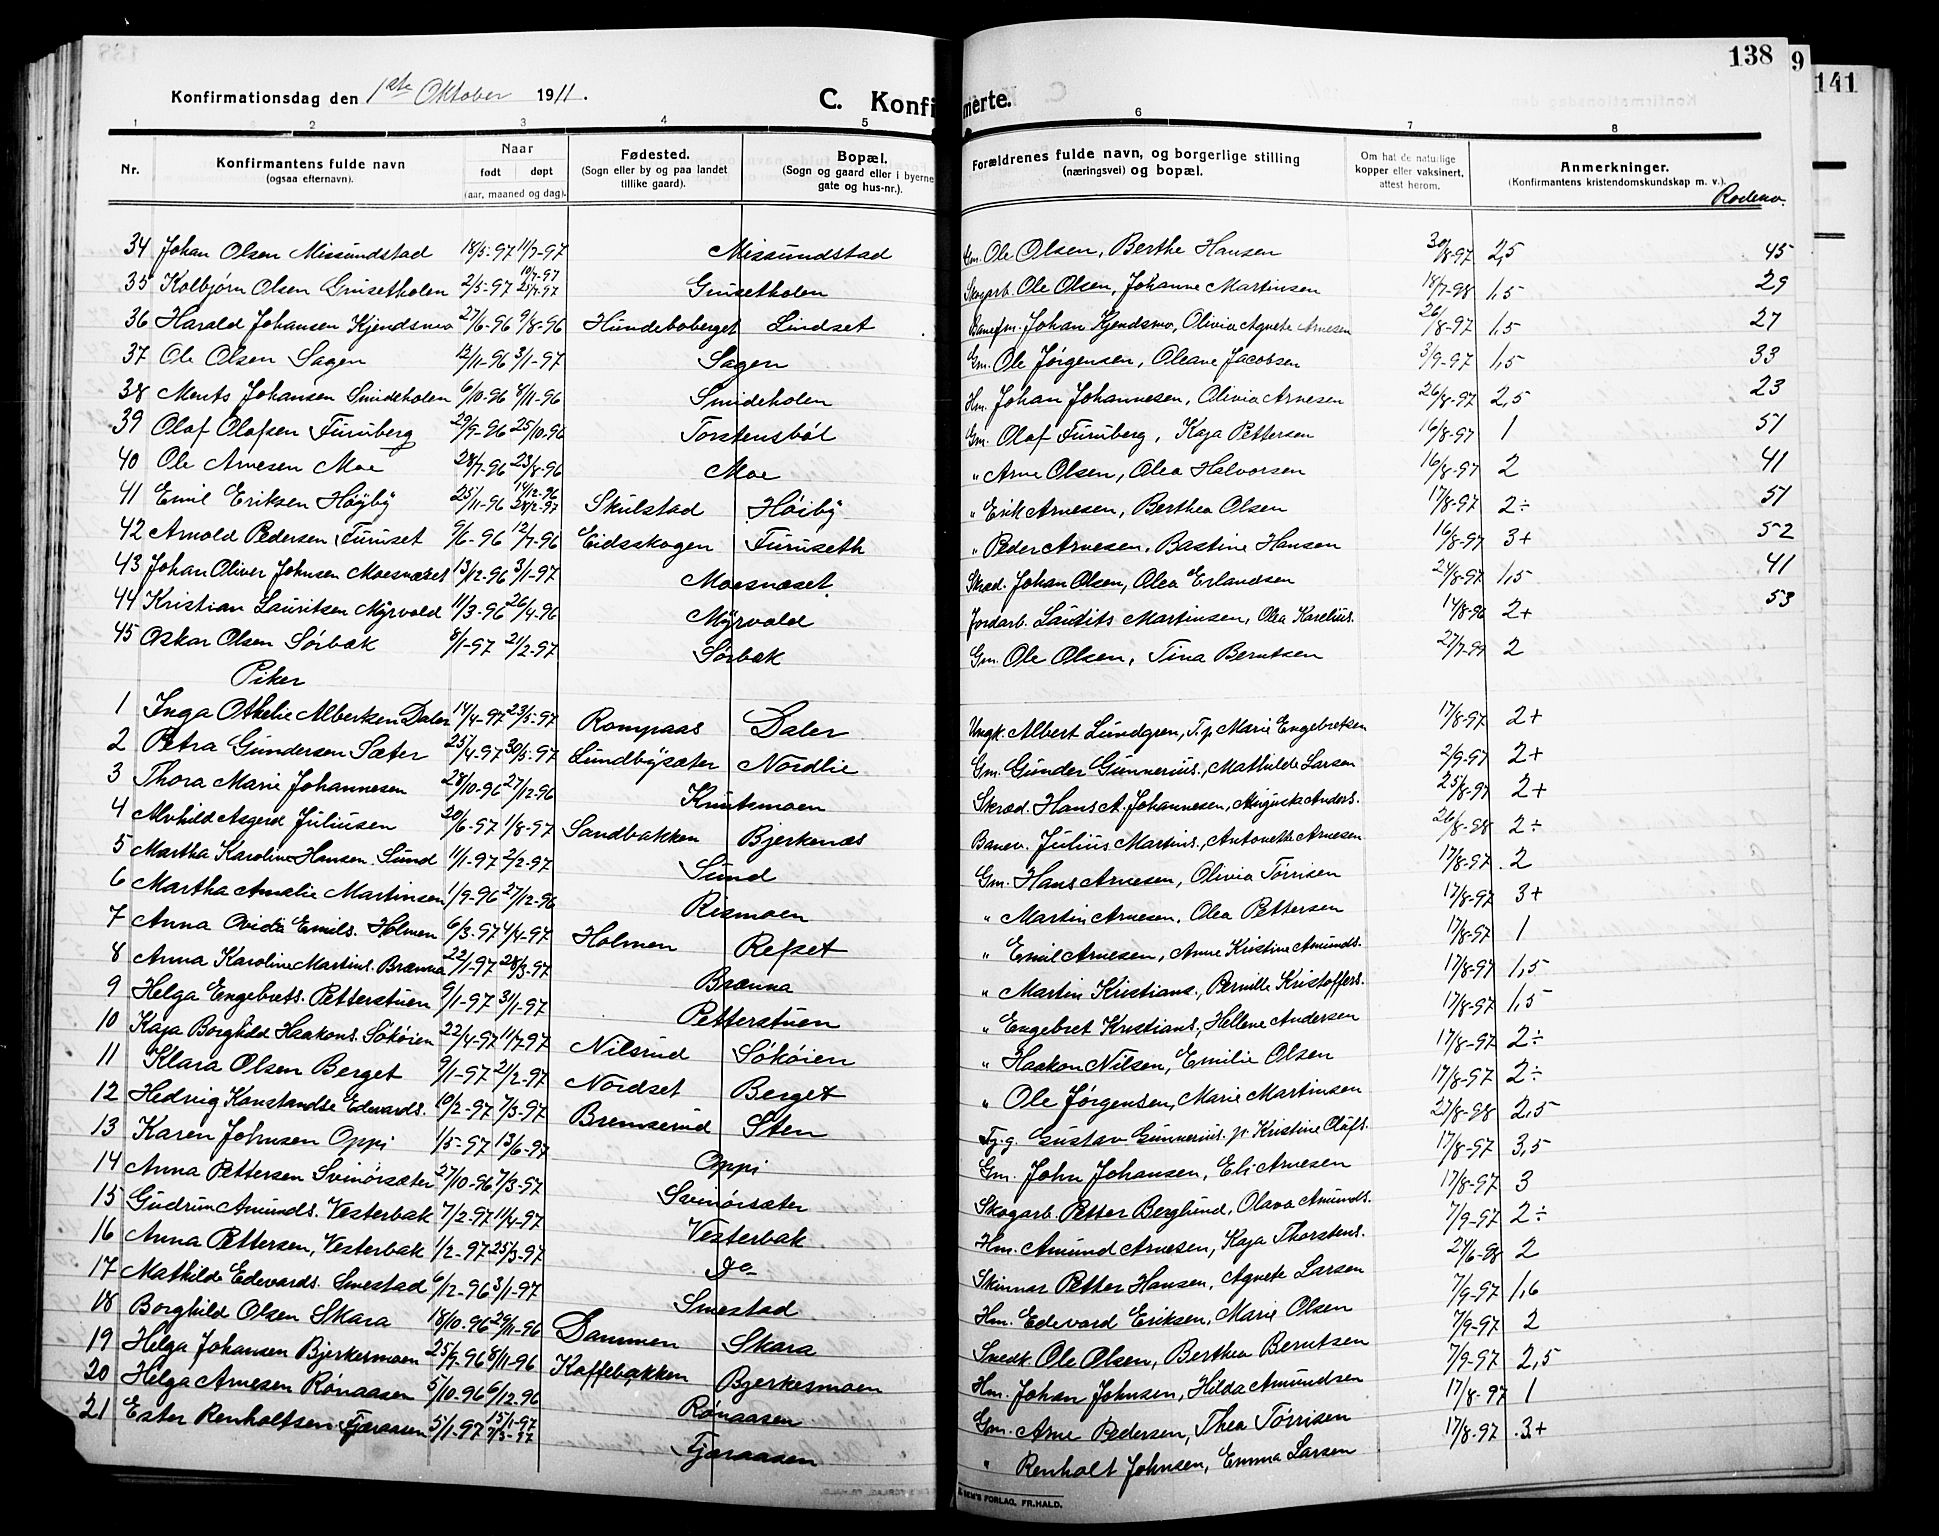 138 9 141
Konfirmationsdag den 1ste Oktober 1911. C. Konfi merte.
1 2 3 4 5 6 7 8
Nr. Konfirmantens fulde navn (ogsaa efternavn). Naar født døpt (aar, maaned og dag). Fødested. (Sogn eller by og paa landet tillike gaard). Bopæl. (Sogn og gaard eller i byerne gate og hus-nr.). Forældrenes fulde navn, og borgerlige stilling (næringsvei) og bopæl. Om hat de naturlige kopper eller vaksinert, attest herom. Anmerkninger. (Konfirmantens kristendomskundskap m. v.). Rodenv.
34 Johan Olsen Missundstad 18/5-97 11/7-97 Missundstad Gm. Ole Olsen, Berthe Hansen 30/8-97 2,5 45
35 Kolbjørn Olsen Gruisetholen 2/5-97 10/7-97 25/7-97 Gruisetholen Skogarb. Ole Olsen, Johanne Martinsen 18/7-98 1,5 29
36 Harald Johansen Kjendsmo 27/6-96 9/8-96 Hundeboberget Lindset Banefm. Johan Kjendsmo, Olivia Agnete Arnesen 26/8-97 1,5 27
37 Ole Olsen Sagen 12/11-96 3/1-97 Sagen Gm. Ole Jørgensen, Oleane Jacobsen 3/9-97 1,5 33
38 Ments Johansen Smideholen 6/10-96 8/11-96 Smideholen Hm. Johan Johannesen, Olivia Arnesen 26/8-97 2,5 23
39 Olaf Olafsen Furuberg 29/9-96 25/10-96 Torstensböl Gm. Olaf Furuberg, Kaja Pettersen 16/8-97 1 51
40 Ole Arnesen Moe 28/7-96 23/8-96 Moe " Arne Olsen, Olea Halvorsen 16/8-97 2 41
41 Emil Eriksen Høyby 25/11-96 14/12-96 28/2-97 Skulstad Høiby " Erik Arnesen, Berthea Olsen 17/8-97 2÷ 51
42 Arnold Pedersen Furuset 9/6-96 12/7-96 Eidsskogen Furuseth " Peder Arnesen, Bastine Hansen 16/8-97 3+ 52
43 Johan Oliver Johnsen Moesnæset 13/12-96 3/1-97 Moesnæset. Skræd. Johan Olsen, Olea Erlandsen 24/8-97 1,5 41
44 Kristian Lauritsen Myrvold 11/3-96 26/4-96 Myrvold Jordarb. Laudits Martinsen, Olea Karelius. 14/8-96 2+ 53
45 Oskar Olsen Sørbak 8/1-97 21/2-97 Sørbak Gm. Ole Olsen, Tina Berntsen 27/7-97 2
Piker
1 Inga Othelie Albertsen Daler 14/4-97 23/5-97 Rompaas Daler Ungk. Albert Lundgren, T. p. Marie Engebretsen 17/8-97 2+
2 Petra Gundersen Sæter 25/4-97 30/5-97 Lundbysæter Nordlie Gm. Gunder Gunnerius., Mathilde Larsen 2/9-97 2+
3 Thora Marie Johannesen 28/10-96 27/12-96 Knutsmoen Skræd. Hans A. Johannesen, Augusta Anders. 25/8-97 2+
4 Alvhild Asgerd Juliusen 20/6-97 1/8-97 Sandbakken Bjerkenæs Banev. Julius Martins., Antonette Arnesen 26/8-98 2÷
5 Martha Karoline Hansen. Sund 11/1-97 2/2-97 Sund Gm. Hans Arnesen, Olivia Tørrisen 17/8-97 2
6 Martha Amalie Martinsen 1/9-96 27/12-96 Rismoen " Martin Arnesen, Olea Pettersen 17/8-97 3+
7 Anna Ovidia Emils. Holmen 6/3-97 4/4-97 Holmen Refset " Emil Arnesen, Anne Kristine Amunds. 17/8-97 1
8 Anna Karoline Martins. Brænna 22/1-97 28/3-97 Brænna " Martin Kristians., Pernille Kristoffers. 17/8-97 1,5
9 Helga Engebrets. Petterstuen 9/1-97 31/1-97 Petterstuen " Engebret Kristians., Hellene Andersen 17/8-97 1,5
10 Kaja Borghild Haakons. Søkøien 22/4-97 11/7-97 Nilsrud Søkøien " Haakon Nilsen, Emilie Olsen 17/8-97 2÷
11 Klara Olsen Berget 9/1-97 21/2-97 Nordset Berget " Ole Jørgensen, Marie Martinsen 17/8-97 2÷
12 Hedvig Konstandse Edevards. 10/2-97 7/3-97 Bremserud Sten Tj.g. Gustav Gunnerius. p. Kristine Olufs. 23/8-98 2,5
13 Karen Johnsen Oppi 1/5-97 13/6-97 Oppi Gm. John Johansen, Eli Arnesen 17/8-97 3,5
14 Anna Pettersen Svinörsæter 27/10-96 7/3-97 Svinörsæter Skogarb. Petter Berglund, Olava Amunds. 17/8-97 3
15 Gudrun Amunds. Vesterbak 7/2-97 11/4-97 Vesterbak Hm. Amund Arnesen, Kaja Thorstens. 7/9-97 2÷
16 Anna Pettersen, Vesterbak 1/2-97 25/3-97 Do Skinnar Petter Hansen, Agnete Larsen 21/6-98 2
17 Mathilde Edevards. Smestad 6/12-96 3/1-97 Smestad Hm. Edevard Eriksen, Marie Olsen 7/9-97 1,6
18 Borghild Olsen Skara 18/10-96 29/11-96 Dammen Skara Snedk. Ole Olsen, Berthea Berntsen 7/9-97 2
19 Helga Johansen Bjerkesmoen 25/9-96 8/11-96 Kaffebakken Bjerkesmoen Hm. Johan Johnsen, Hilda Amundsen 7/9-97 2,5
20 Helga Arnesen Rönaasen 5/10-96 6/12-96 Rönaasen Gm. Arne Pedersen, Thea Tørrisen 17/8-97 1
21 Ester Renholtsen Tjæraasen 5/1-97 15/1-97 7/3-97 Tjæraasen " Renholt Johnsen, Emma Larsen 17/8-97 3+
FORLAG, FR.HALD.